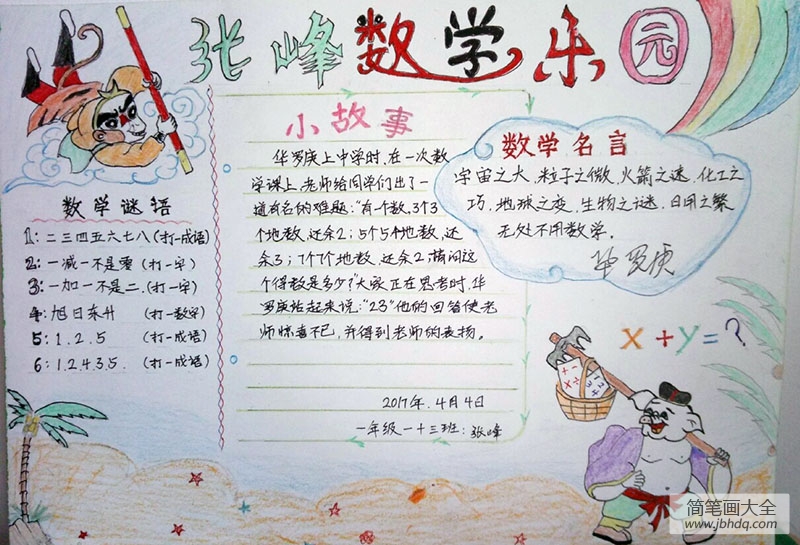 张峰数学乐园
数学谜语
1:二三四五六七八(打一成语)
2:一减一不是零(打一字)
3:一加一不是二.(打一字)
4:旭日东升 (打一数字)
5:1.2.5 (打一成语)
6:1.2.4.3.5. (打一成语)
小故事
华罗庚上中学时,在一次数
学课上,老师给同学们出了一
道有名的难题:“有一个数,3个3
个地数,还余2;5个5个地数,还
余3;7个7个地数,还余2,请问这
个得数是多少?”大家正在思考时,华
罗庚站起来说:“23”他的回答使老
师惊喜不已,并得到老师的表扬。
2017年.4月4日
一年级一十三班:张峰
数学名言
宇宙之大,粒子之微,火箭之速,化工之
巧,地球之变,生物之谜,日用之繁
无处不用数学。
华罗庚
x+y=?
简笔画大全
www.jbhdq.com